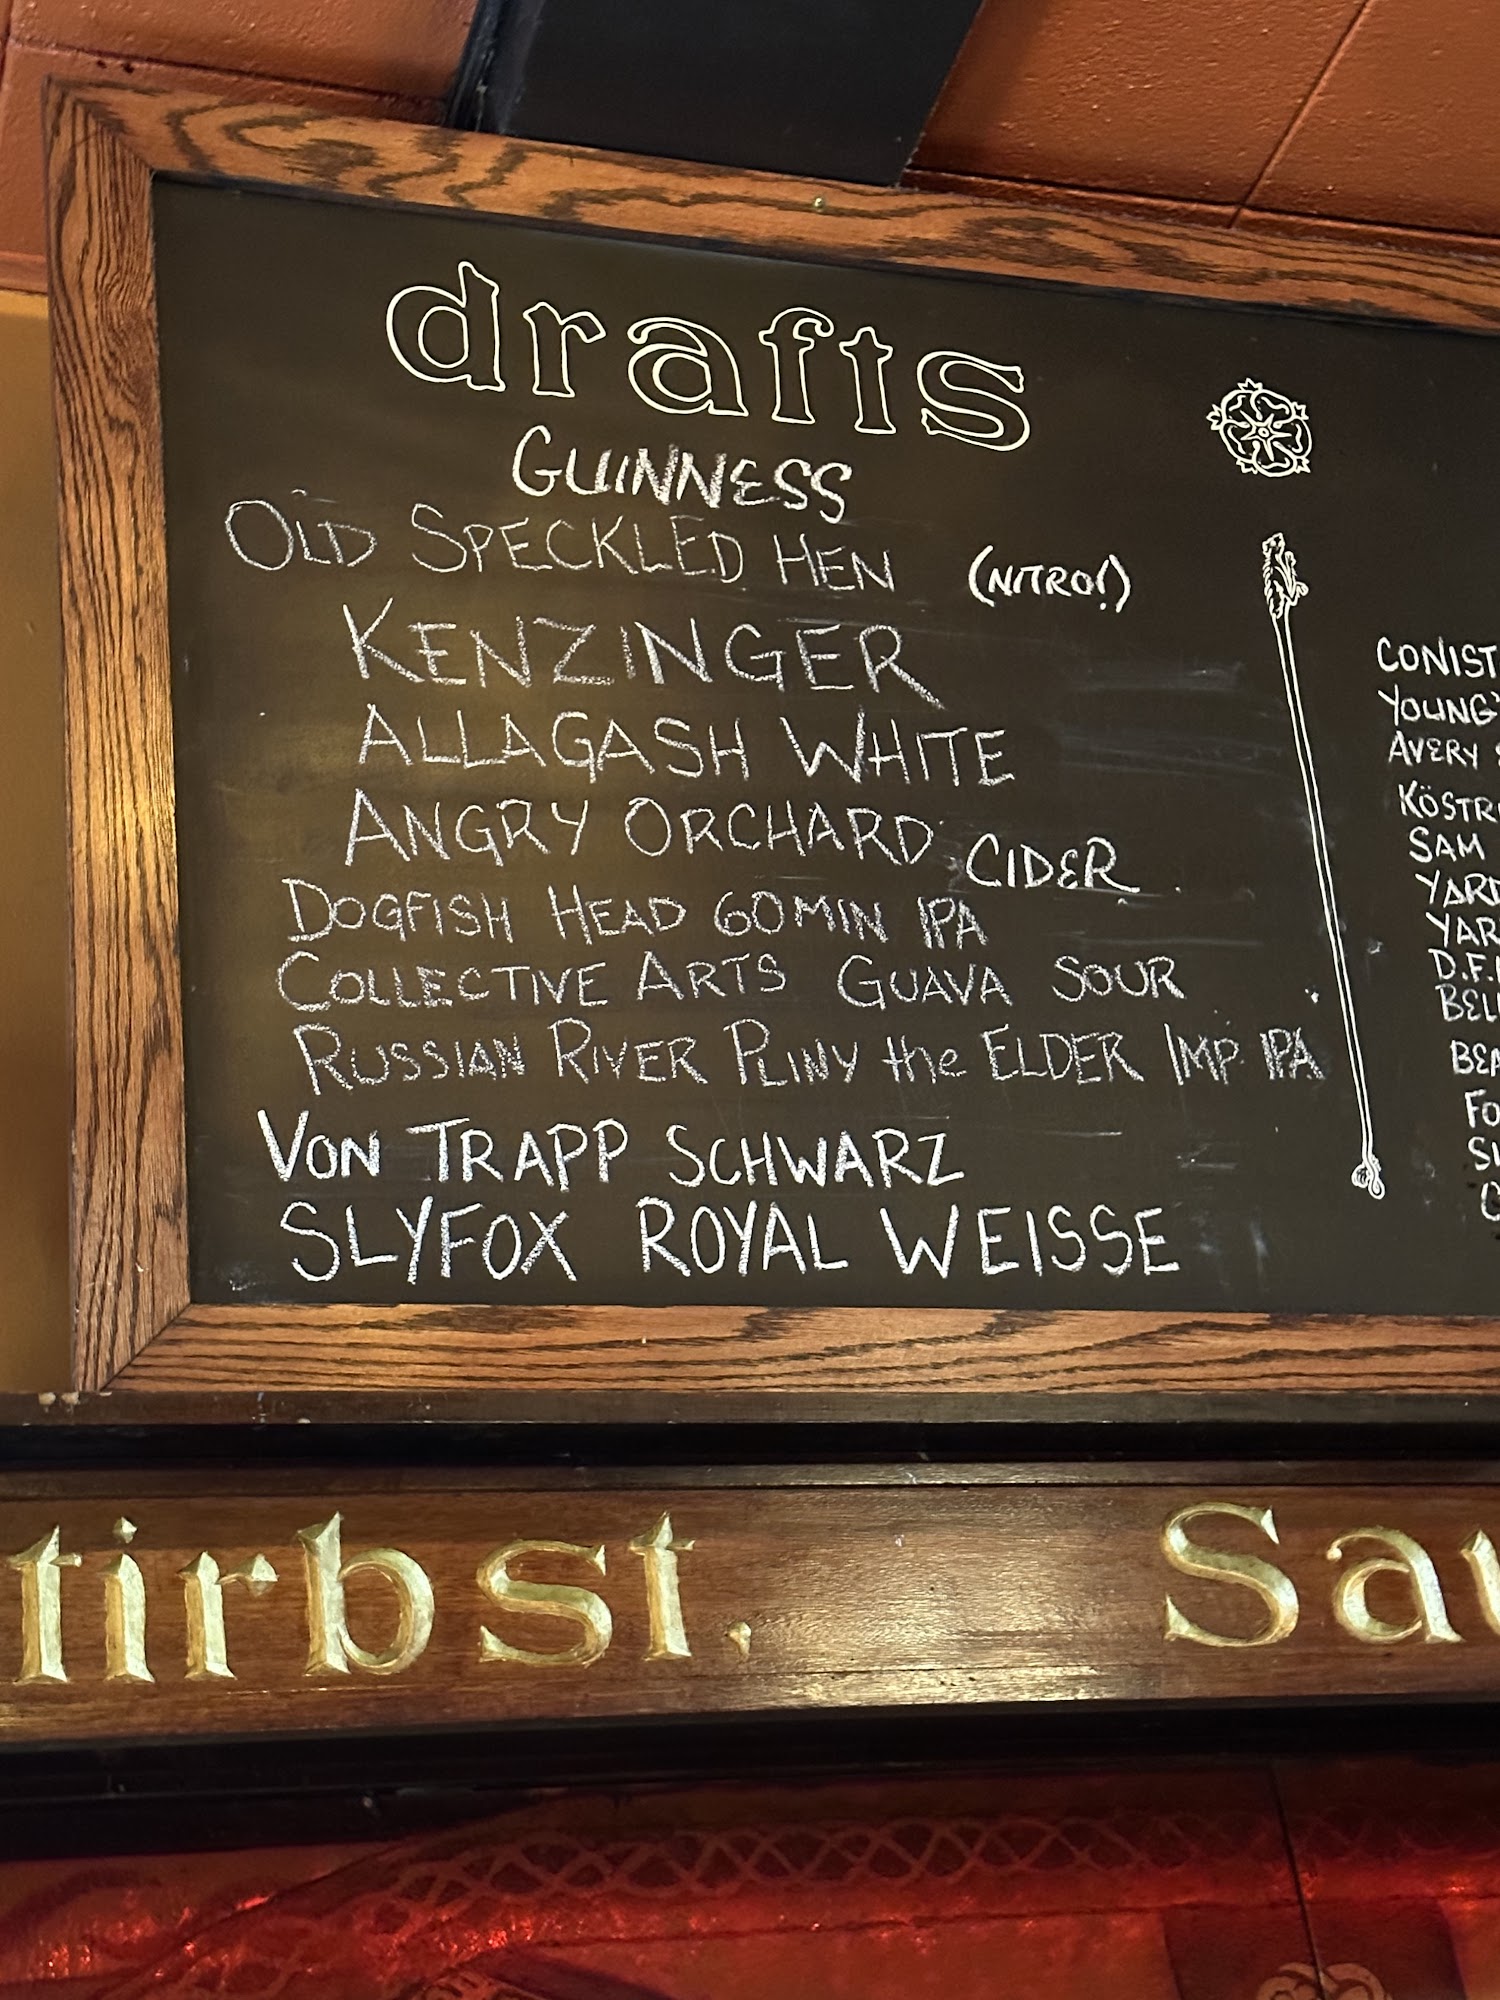 drafts
GUINNESS
OLD SPECKLED HEN (NITRO!)
KENZINGER
ALLAGASH WHITE
ANGRY ORCHARD CIDER
DOGFISH HEAD 60 MIN IPA
COLLECTIVE ARTS GUAVA SOUR
RUSSIAN RIVER PLINY the ELDER IMP IPA
VON TRAPP SCHWARZ
SLYFOX ROYAL WEISSE
CONIST
YOUNG'
AVERY
KÖSTR
SAM
YARD
YAR
D.F.
BEL
BEA
FO
tirbst. Sau